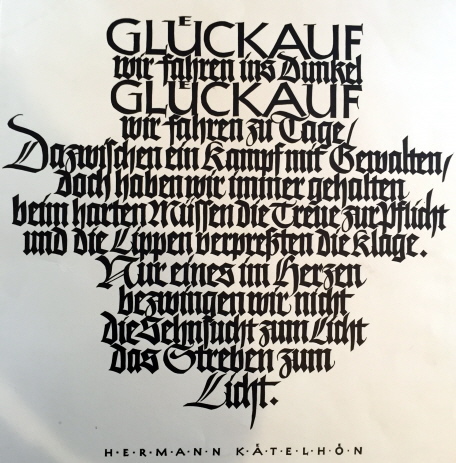 GLÜCKAUF
wir fahren ins Dunkel
GLÜCKAUF
wir fahren zu Tage/
Dazwischen ein Kampf mit Gewalten,
doch haben wir immer gehalten
beim harten Müssen die Treue zur Pflicht
und die Lippen verpreßten die Klage.
Nur eines im Herzen
bezwingen wir nicht
die Sehnsucht zum Licht
das Streben zum
Licht.
H·E·R·M·A·N·N K·Å·T·E·L·H·Ö·N